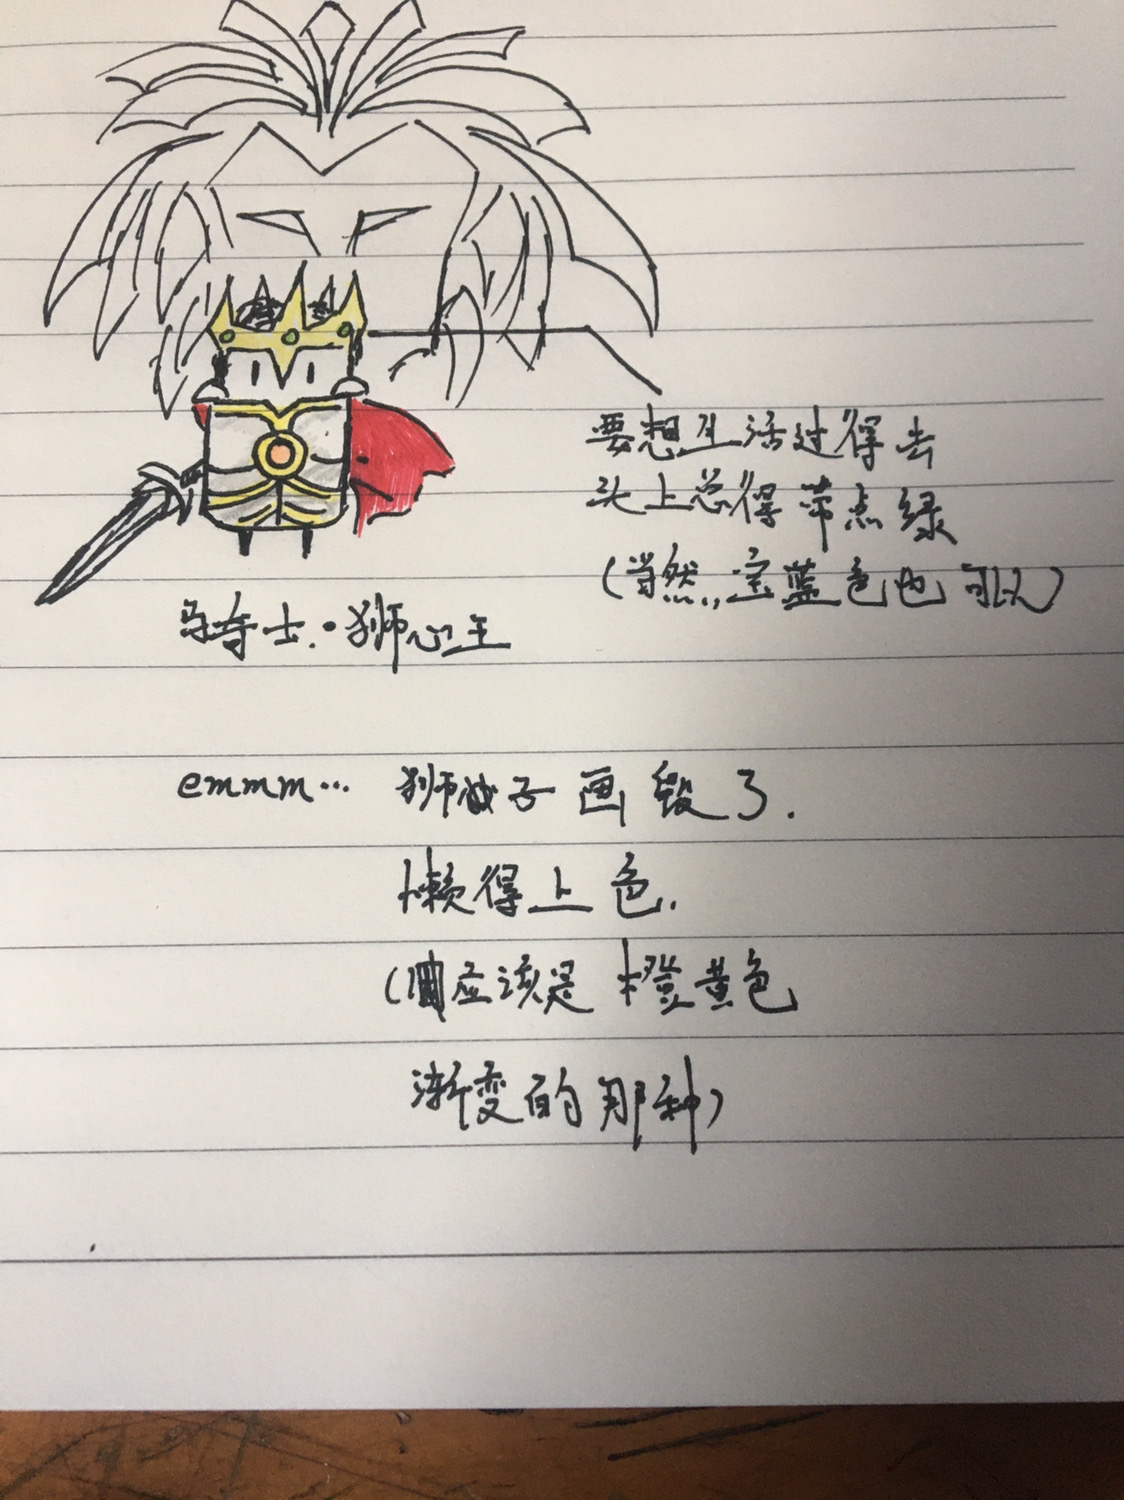 要想生活过得去
头上总得带点绿
(当然,宝蓝色也可以)
骑士·狮心王
emmm… 狮子画毁了.
懒得上色.
(应该是橙黄色
渐变的那种)